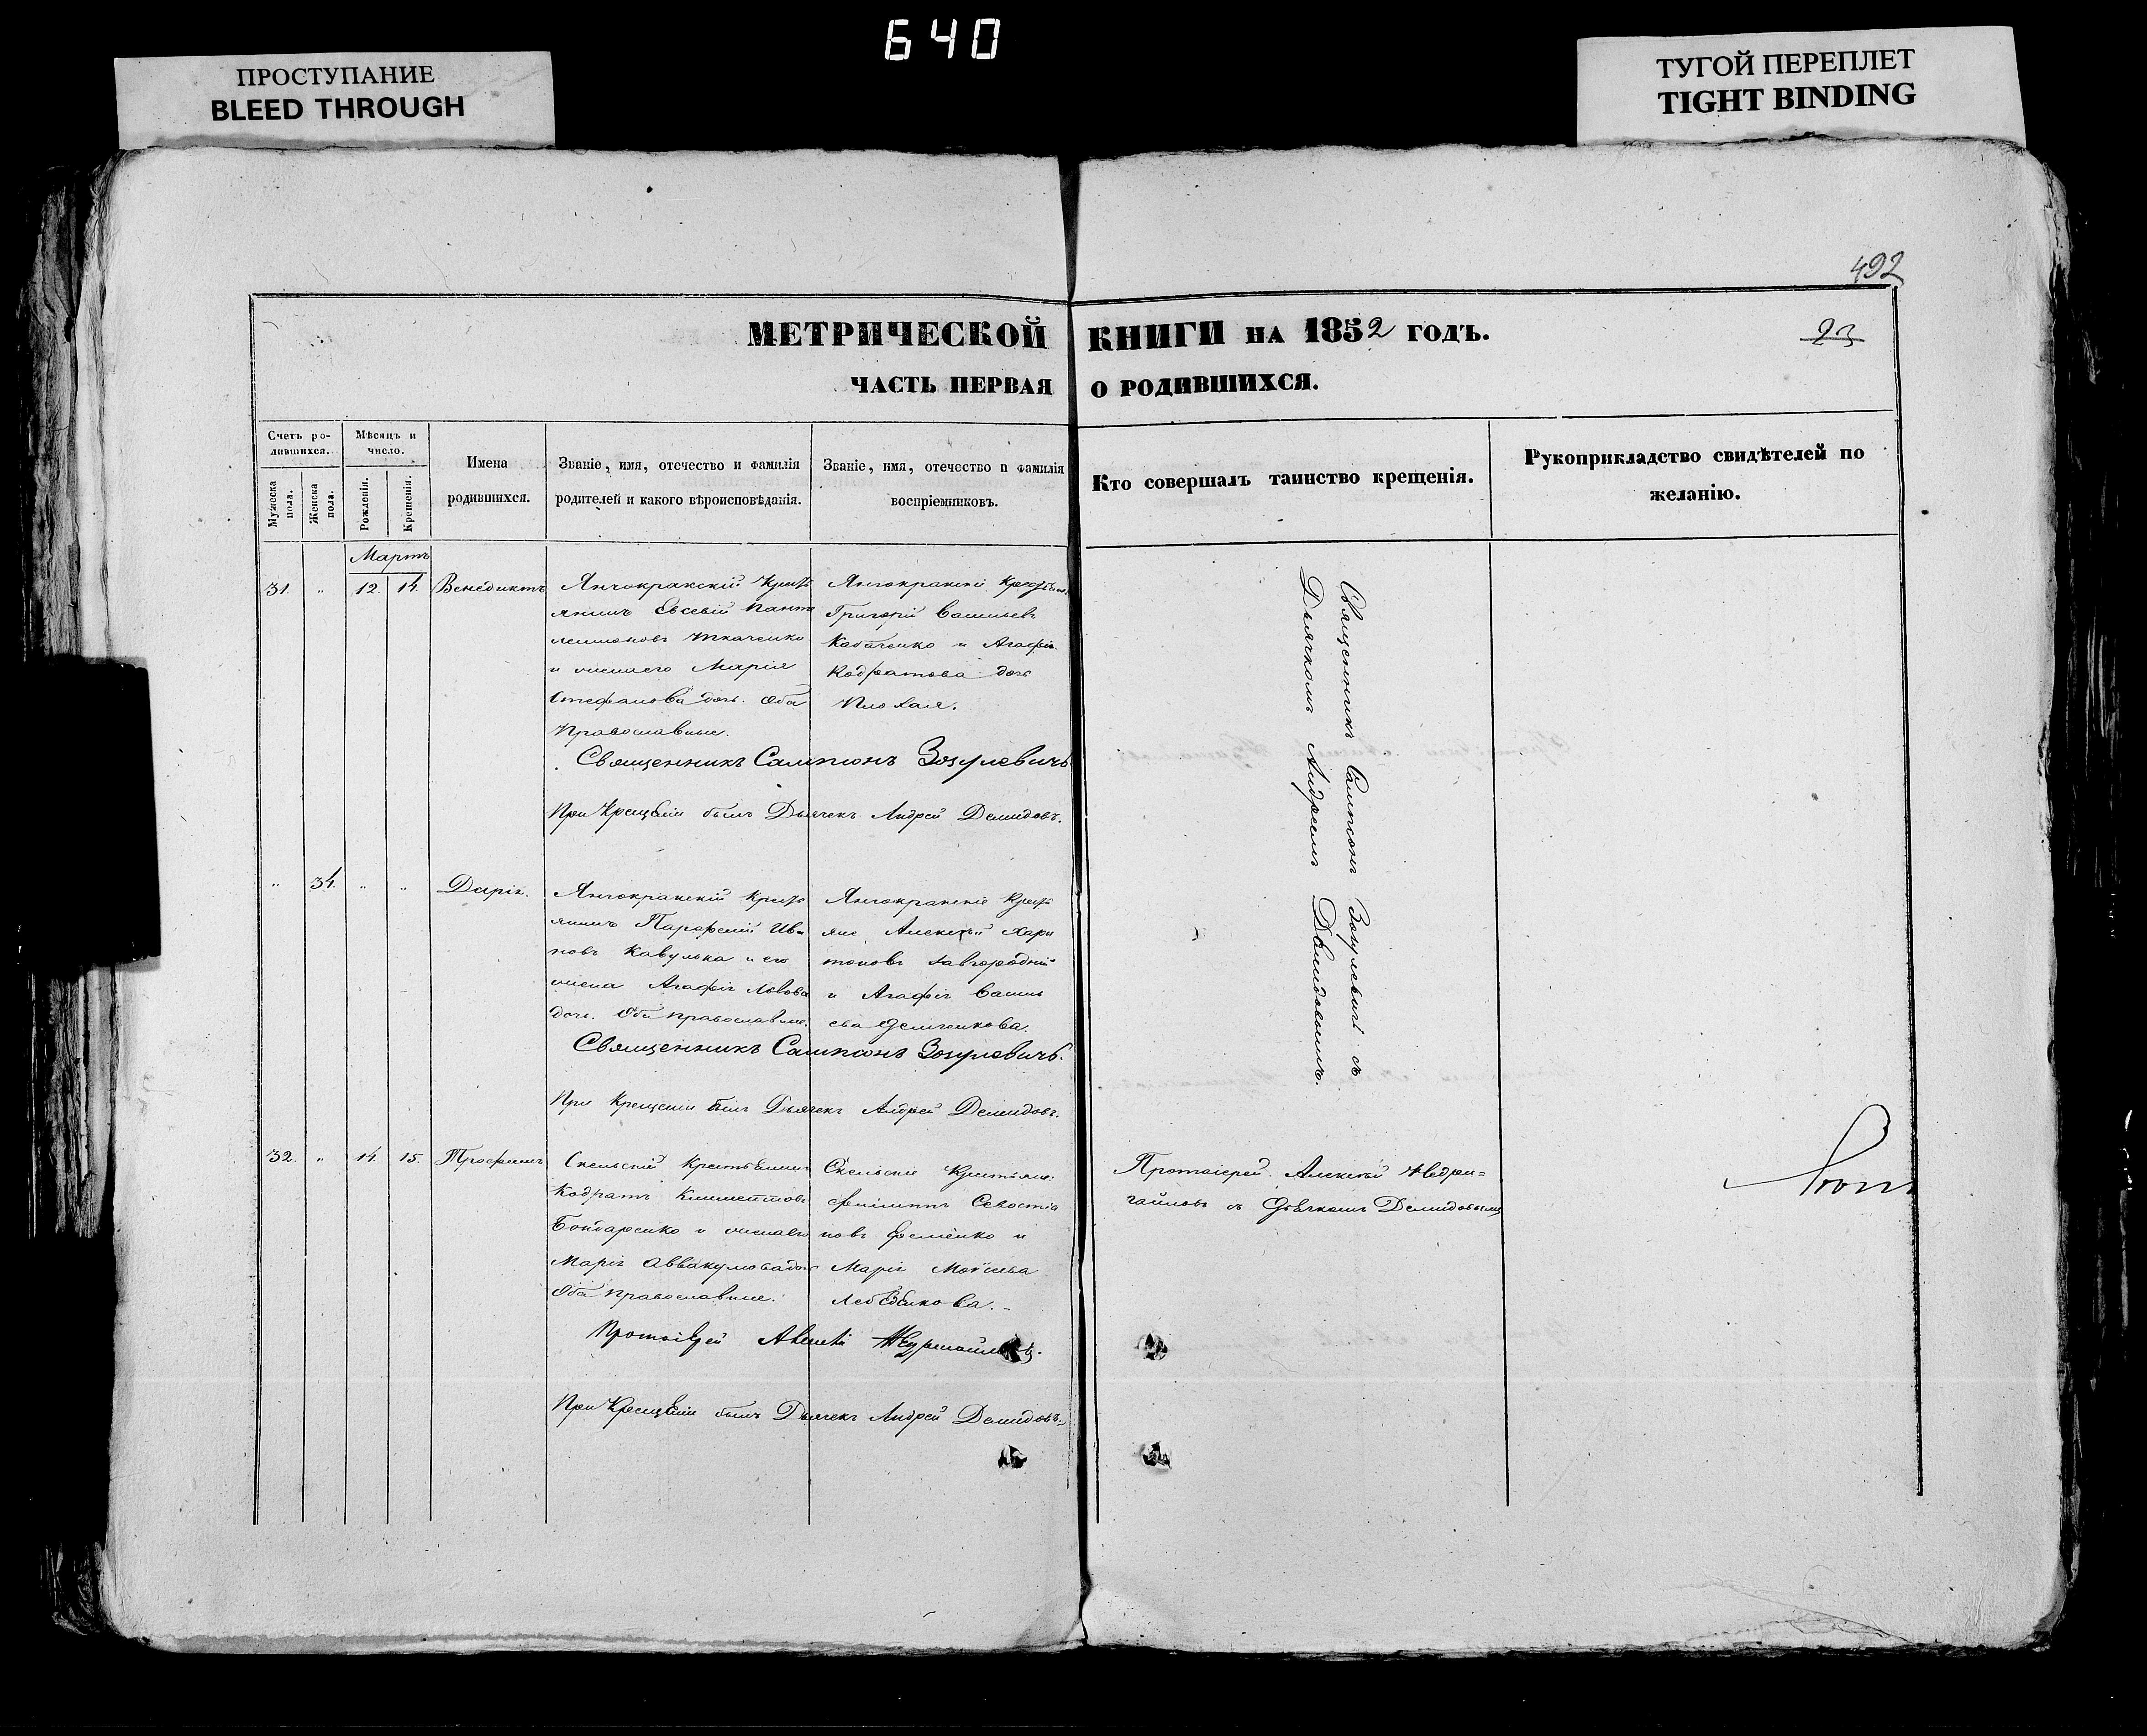 640
ПРОСТУПАНИЕ
BLEED THROUGH
ТУГОЙ ПЕРЕПЛЕТ
TIGHT BINDING
492
МЕТРИЧЕСКОЙ КНИГИ НА 1852 ГОДЪ.
23
ЧАСТЬ ПЕРВАЯ О РОДИВШИХСЯ.
Счетъ ро-
дившихся.
Мужеска
пола.
Женска
пола.
Мѣсяцъ и
число.
Рожденія.
Крещенія.
Имена
родившихся.
Званіе, имя, отечество и фамилія
родителей и какого вѣроисповѣданія.
Званіе, имя, отечество и фамилія
воспріемниковъ.
Кто совершалъ таинство крещенія.
Рукоприкладство свидѣтелей по
желанію.
Мартъ
31. „ 12. 14. Венедиктъ
Янчокракскій Крестъ
янинъ Евсевій Панте
леимоновъ Ткаченко
и жена его Марія
Стефанова дочь. Оба
Православные.
Янчокракскіе
Григорій Васильевъ
Кабаченко и Агафія
Кодратова дочь
Плохая.
Священникъ Сампсонъ Зозулевичъ
При Крещеніи былъ Дьячекъ Андрей Демидовъ.
Священникъ Сампсонъ Зозулевичъ съ
Дьячкомъ Андреемъ Демидовымъ.
„ 34. „ „ Дарія.
Янчокракскій Крестъ
янинъ Парфеній Ива
новъ Кавулька и его
жена Агафія Львова
дочь. Оба православные.
Янчокракскіе Крестъ
яне Алексѣй Хари
тоновъ Завгородній
и Агафія Василь
ева Демченкова.
Священникъ Сампсонъ Зозулевичъ.
При Крещеніи былъ Дьячекъ Андрей Демидовъ.
32. „ 14. 15. Трофимъ
Скельскій Крестьянинъ
Кодратъ Климентовъ
Бондаренко и жена его
Марія Аввакумова дочь
Оба православные.
Скельскіе Крестьяне
Филиппъ Севостіа
новъ Еременко и
Марія Моисеева
Лебеденкова.
Протоіерей
При Крещеніи былъ Дьячекъ Андрей Демидовъ.
Протоіерей Алексѣй
съ Дьячкомъ Демидовымъ